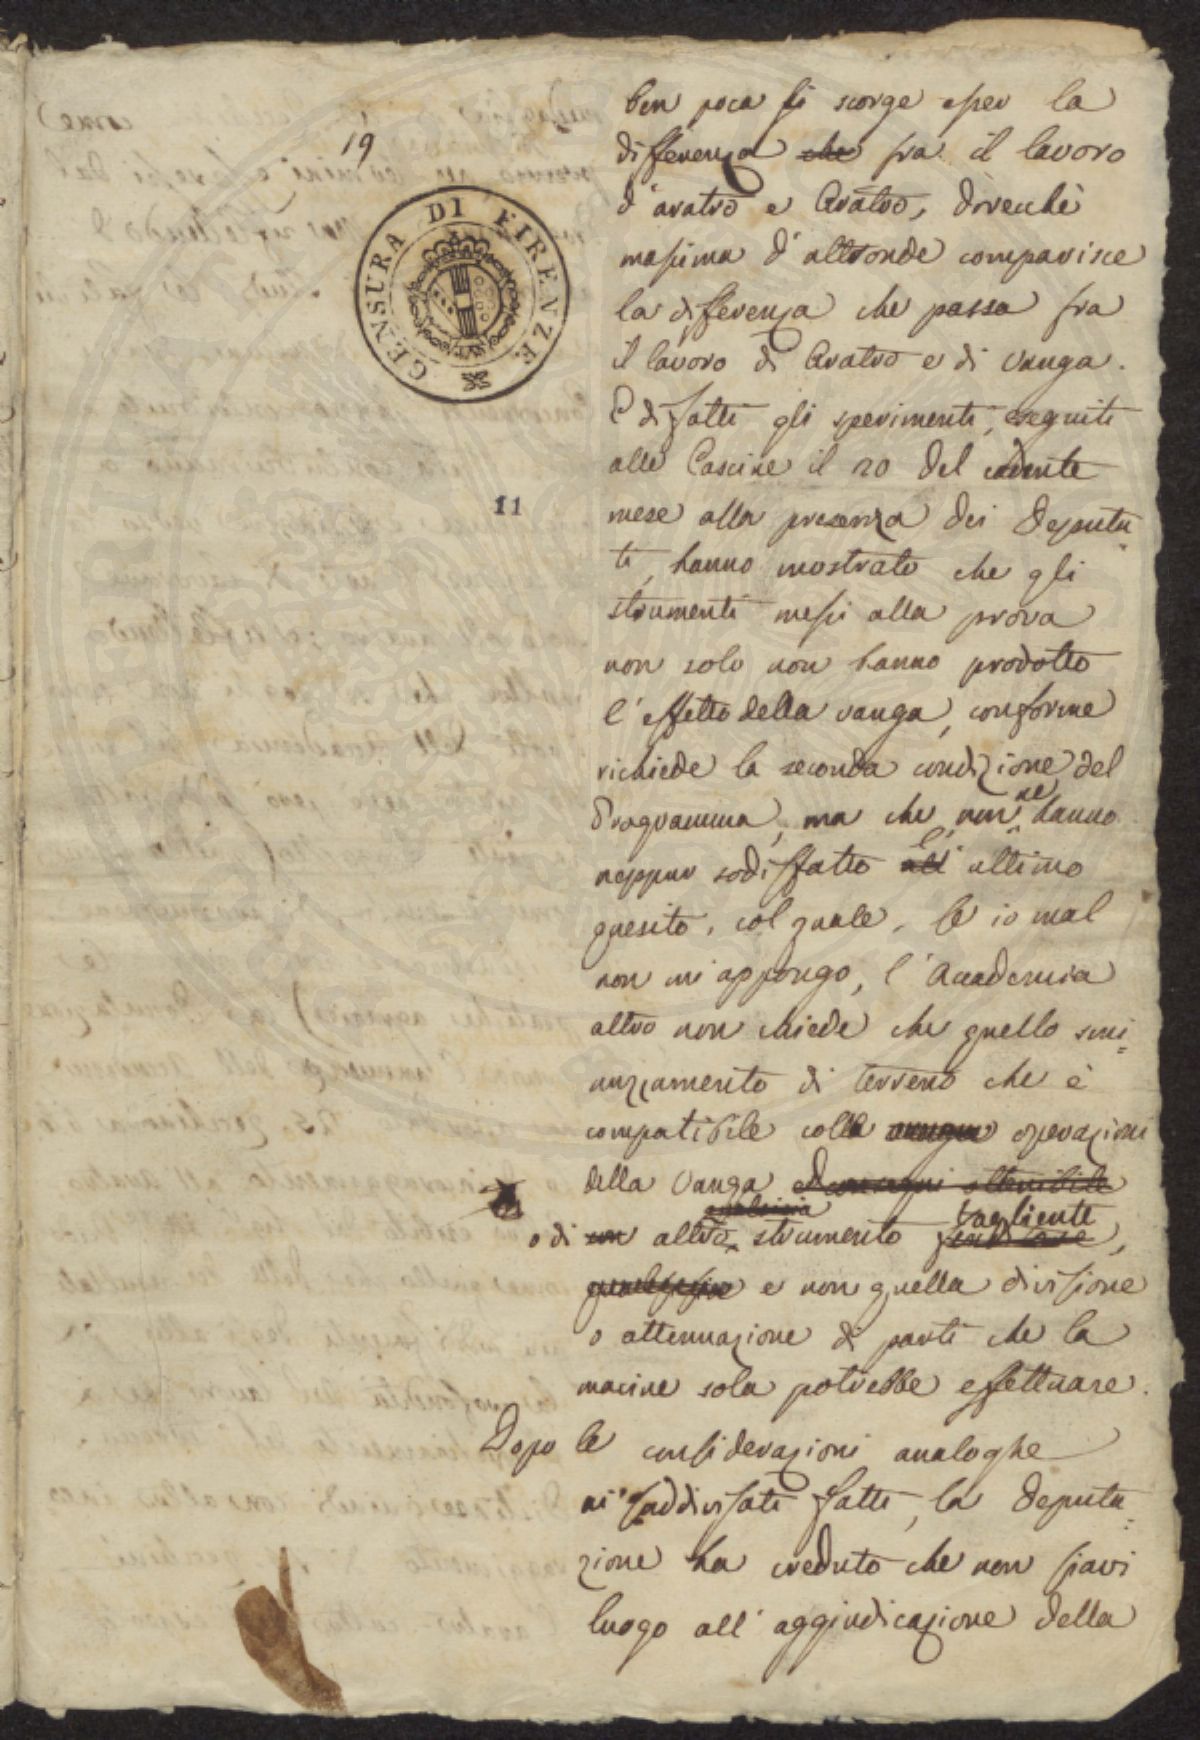 19
CENSURA DI FIRENZE
11
ben poca si scorge esser la
differenza che fra il lavoro
d'aratro e Aratro, dovecchè
massima d'altronde comparisce
la differenza che passa fra
il lavoro di Aratro e di vanga.
E di fatti gli sperimenti, eseguiti
alle Cascine il 20 del cadente
mese alla presenza dei Deputa-
ti, hanno mostrato che gli
strumenti messi alla prova
non solo non hanno prodotto
l'effetto della vanga, conforme
richiede la seconda condizione del
Programma, ma che non ne hanno
neppur sodisfatto all' l' ultimo
quesito, col quale, se io mal
non mi appongo, l'Accademia
altro non chiede che quello smi=
nuzzamento di terreno che è
compatibile colle operazioni
della Vanga ottenibile
o di un altro strumento tagliente,
e non quella divisione
o attenuazione di parti che la
macine sola potrebbe effettuare.
Dopo le considerazioni analoghe
ai suddivisati fatti, la Deputa=
zione ha creduto che non siavi
luogo all'aggiudicazione della